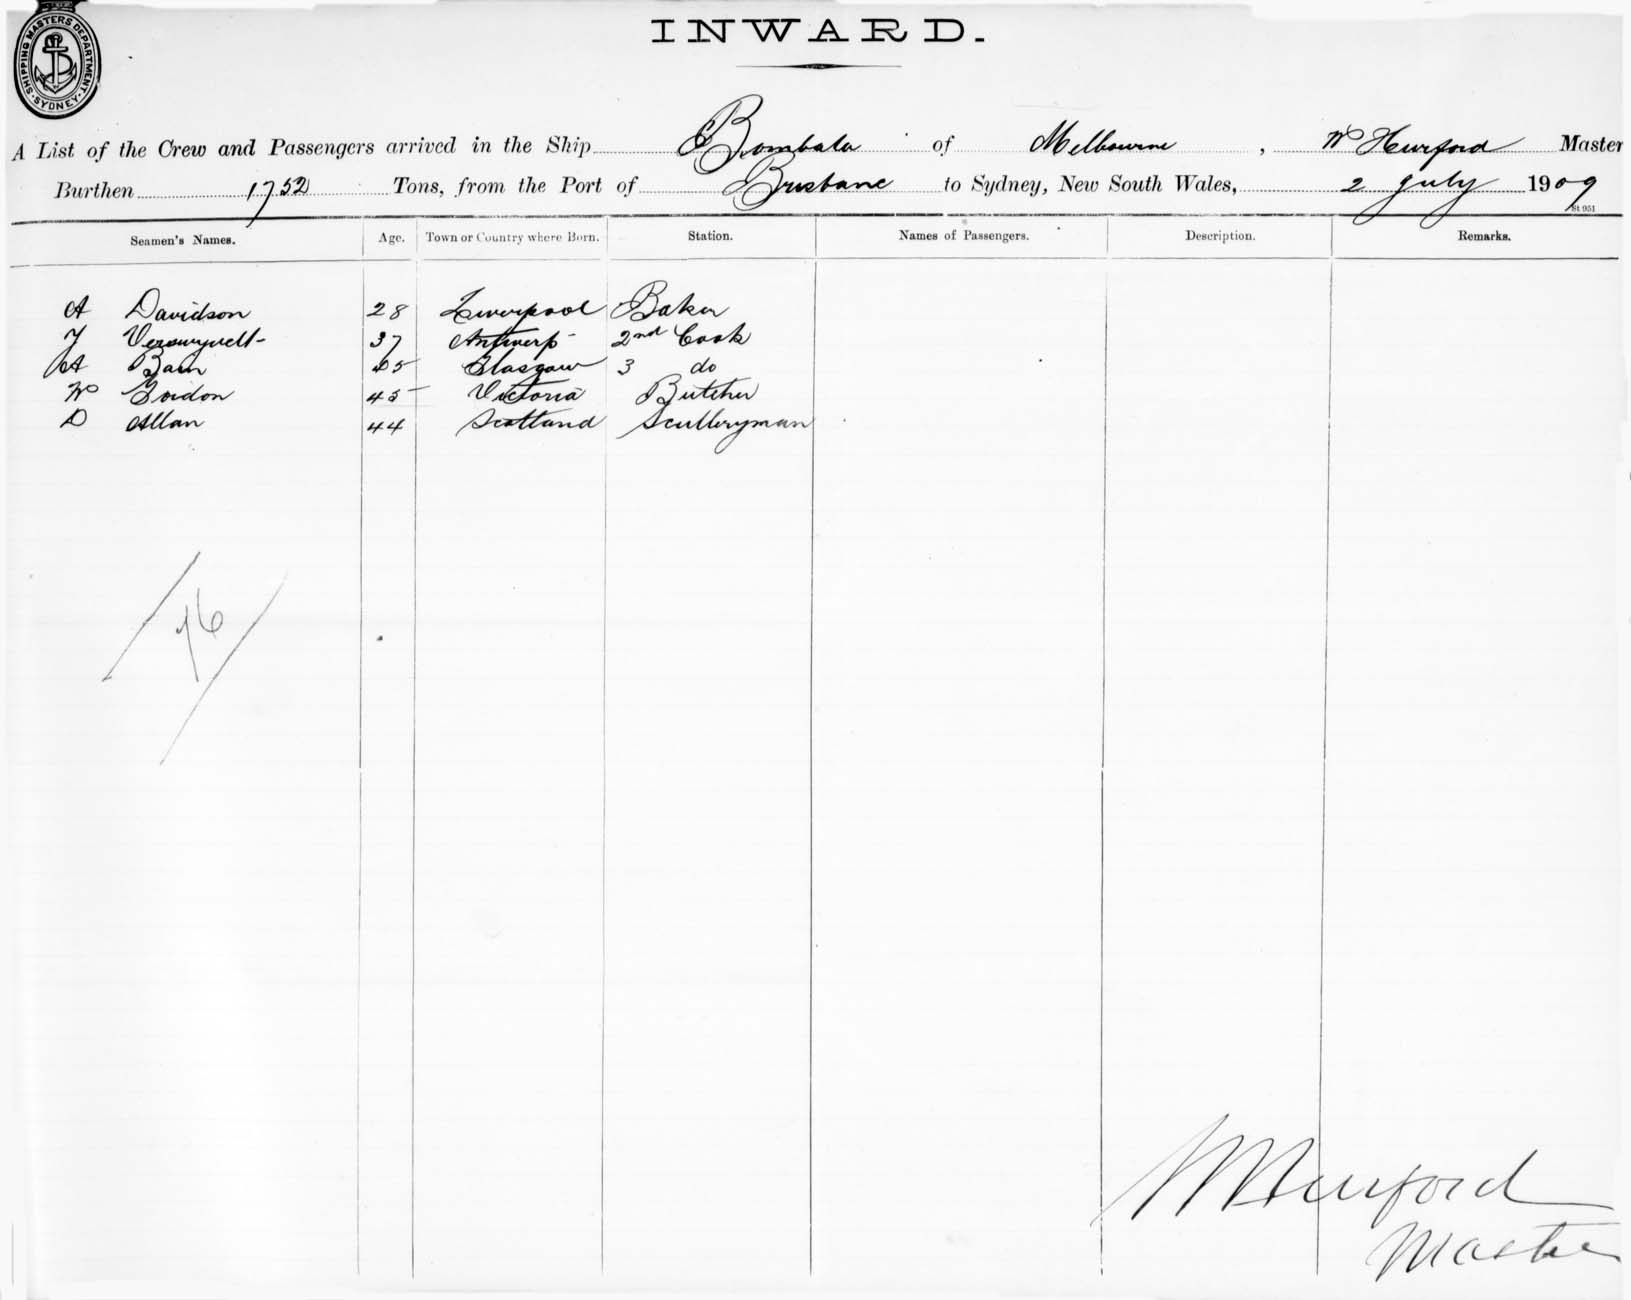 SHIPPING MASTERS DEPARTMENT. SYDNEY.
INWARD.
A List of the Crew and Passengers arrived in the Ship Bombala of Melbourne, Wm Hurford Master
Burthen 1752 Tons, from the Port of Brisbane to Sydney, New South Wales, 2 July 1909
St 951
Seamen's Names. Age. Town or Country where Born. Station. Names of Passengers. Description. Remarks.
A Davidson 28 Liverpool Baker
37 Antwerp 2nd Cook
A Bain Glasgow 3 do
Wm Gordon 45 Victoria Butcher
D Allan 44 Scotland Sculleryman
76
W Hurford
Master